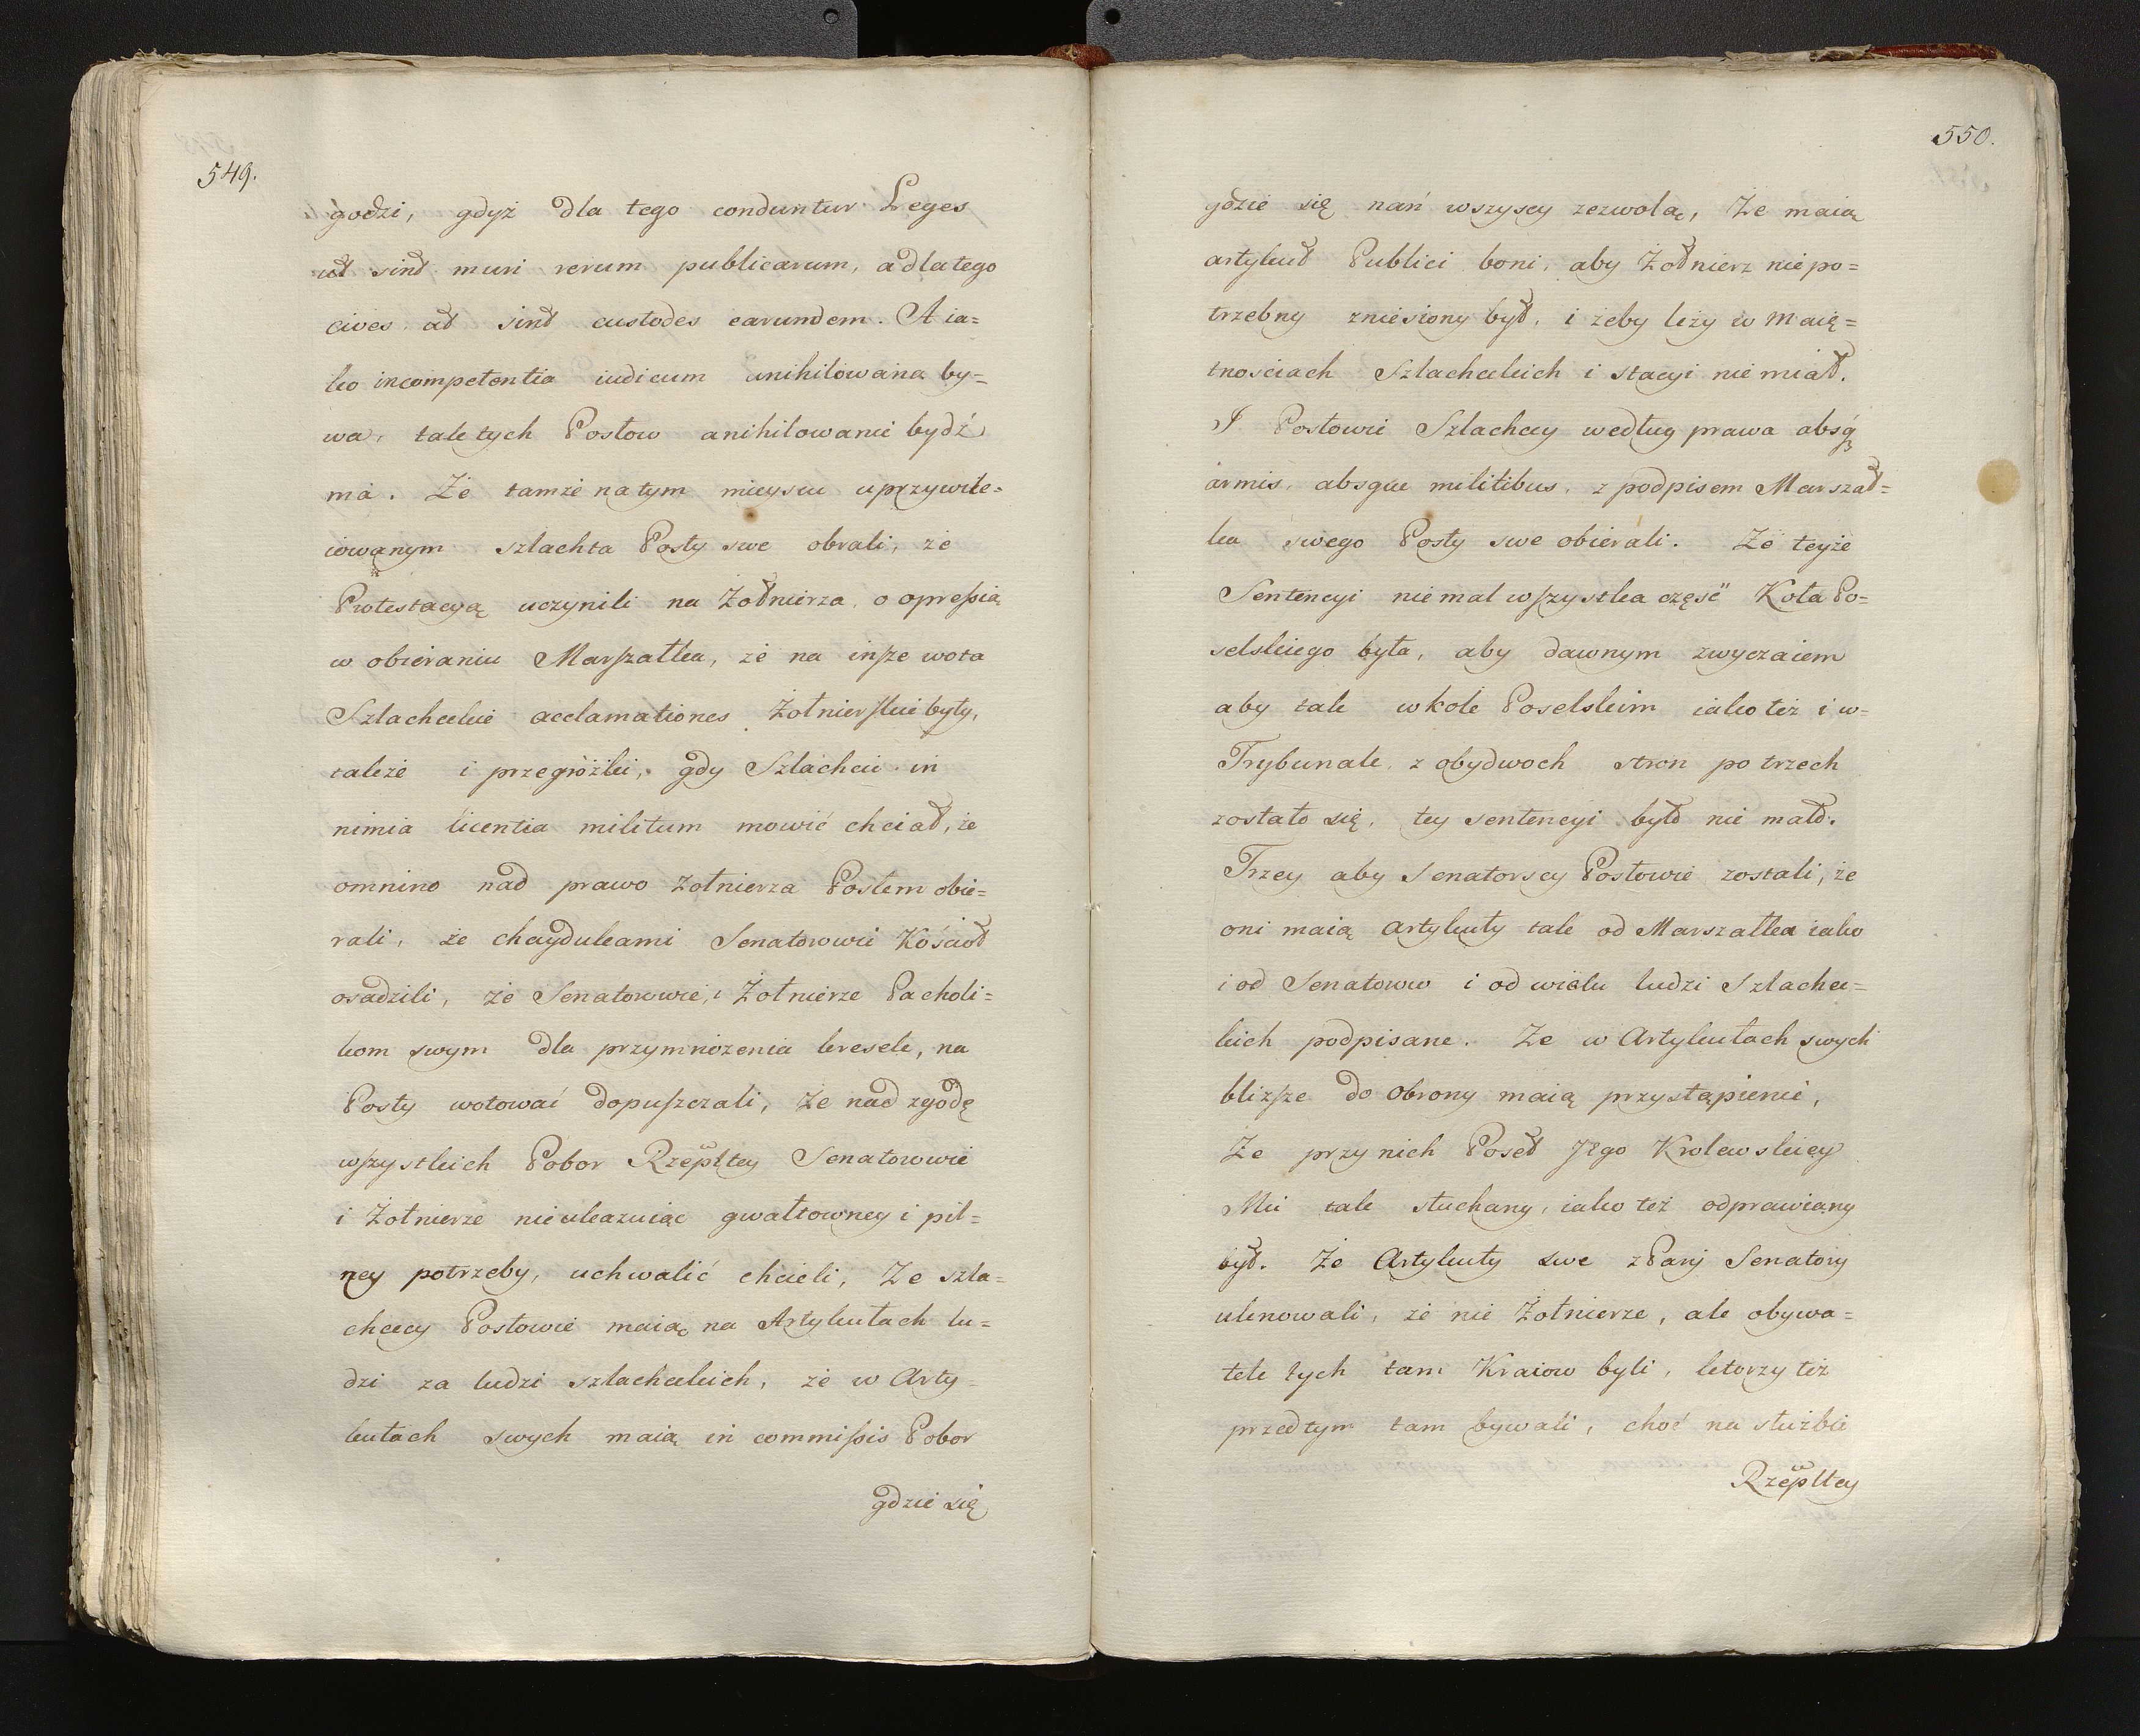 549.
godzi, gdyż dla tego conduntur Leges
ut sint muri rerum publicarum, a dla tego
cives at sint custodes earundem. A ia=
ko incompetentia iudicum anihilowana by=
wa, tak tych Posłow anihilowanie bydź
ma. Że tamże na tym mieyscu uprzywile=
iowanym szlachta Posły swe obrali, że
Protestacyą uczynili na Żołnierza o opreſsią
w obieraniu Marſzałka, że na inſze wota
Szlacheckie acclamationes Żołnierſkie były,
także i przegróżki, gdy Szlachcic in
nimia licentia militum mowić chciał, że
omnino nad prawo Żołnierza Posłem obie=
rali, że chaydukami Senatorowie Kościoł
osadzili, że Senatorowie, i Żołnierze Pacholi=
kom swym dla przymnożenia kresek, na
Posły wotować dopuſzczali, Że nad zgodę
wſzystkich Pobor Rzepltey Senatorowie
i Żołnierze nieukazuiąc gwałtowney i pil=
ney potrzeby, uchwalić chcieli, Że szla=
checcy Posłowie maią na Artykułach lu=
dzi za ludzi szlacheckich, że w Arty=
kułach swych maią in commiſsis Pobor
gdzie się
550.
gdzie się nań wszyscy zezwolą, Że maią
artykuł Publici boni, aby Żołnierz niepo=
trzebny zniesiony był, i żeby leży w Maię=
tnościach Szlacheckich i stacyi nie miał.
I Posłowie Szlachccy według prawa absq3
armis, absque militibus, z podpisem Marszał=
ka swego Posły swe obierali. Że teyże
Sentencyi nie mal wſzystka część Koła Po=
selskiego była, aby dawnym zwyczaiem
aby tak w kole Poselskim iako też i w=
Trybunale z obydwoch stron po trzech
zostało się, tey sentencyi był nie mało.
Trzey aby Senatorscy Posłowie zostali, że
oni maią artykuły tak od Marszałka iako
i od Senatorow i od wielu ludzi Szlachec=
kich podpisane. Że w Artykułach swych
bliżſze do obrony maią przystąpienie,
Że przy nich Poseł Jego Krolewskiey
Mci tak słuchany, iako też odprawiany
był. Że Artykuły swe z Pany Senatory
uknowali, że nie Żołnierze, ale obywa=
tele tych tam Kraiow byli, ktorzy też
przedtym tam bywali, choć na służbie
Rzepltey